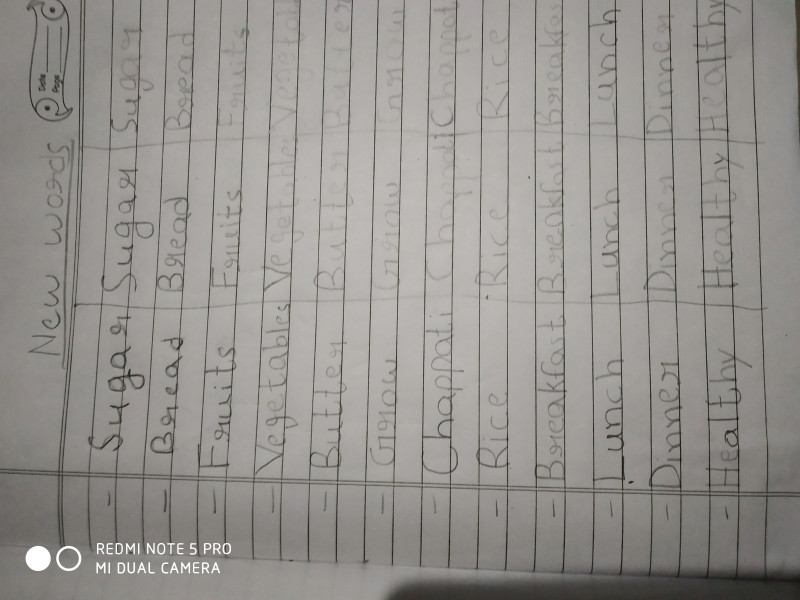 Date
Page
New words
- Sugar Sugar Sugar
- Bread Bread Bread
- Fruits Fruits Fruits
- Vegetables Vegetables Vegetab
- Butter Butter Butter
- Grow Grow Grow
- Chappati Chappati Chappat
- Rice Rice Rice
- Breakfast Breakfast Breakfas
- Lunch Lunch Lunch
- Dinner Dinner Dinner
- Healthy Healthy Healthy
REDMI NOTE 5 PRO
MI DUAL CAMERA